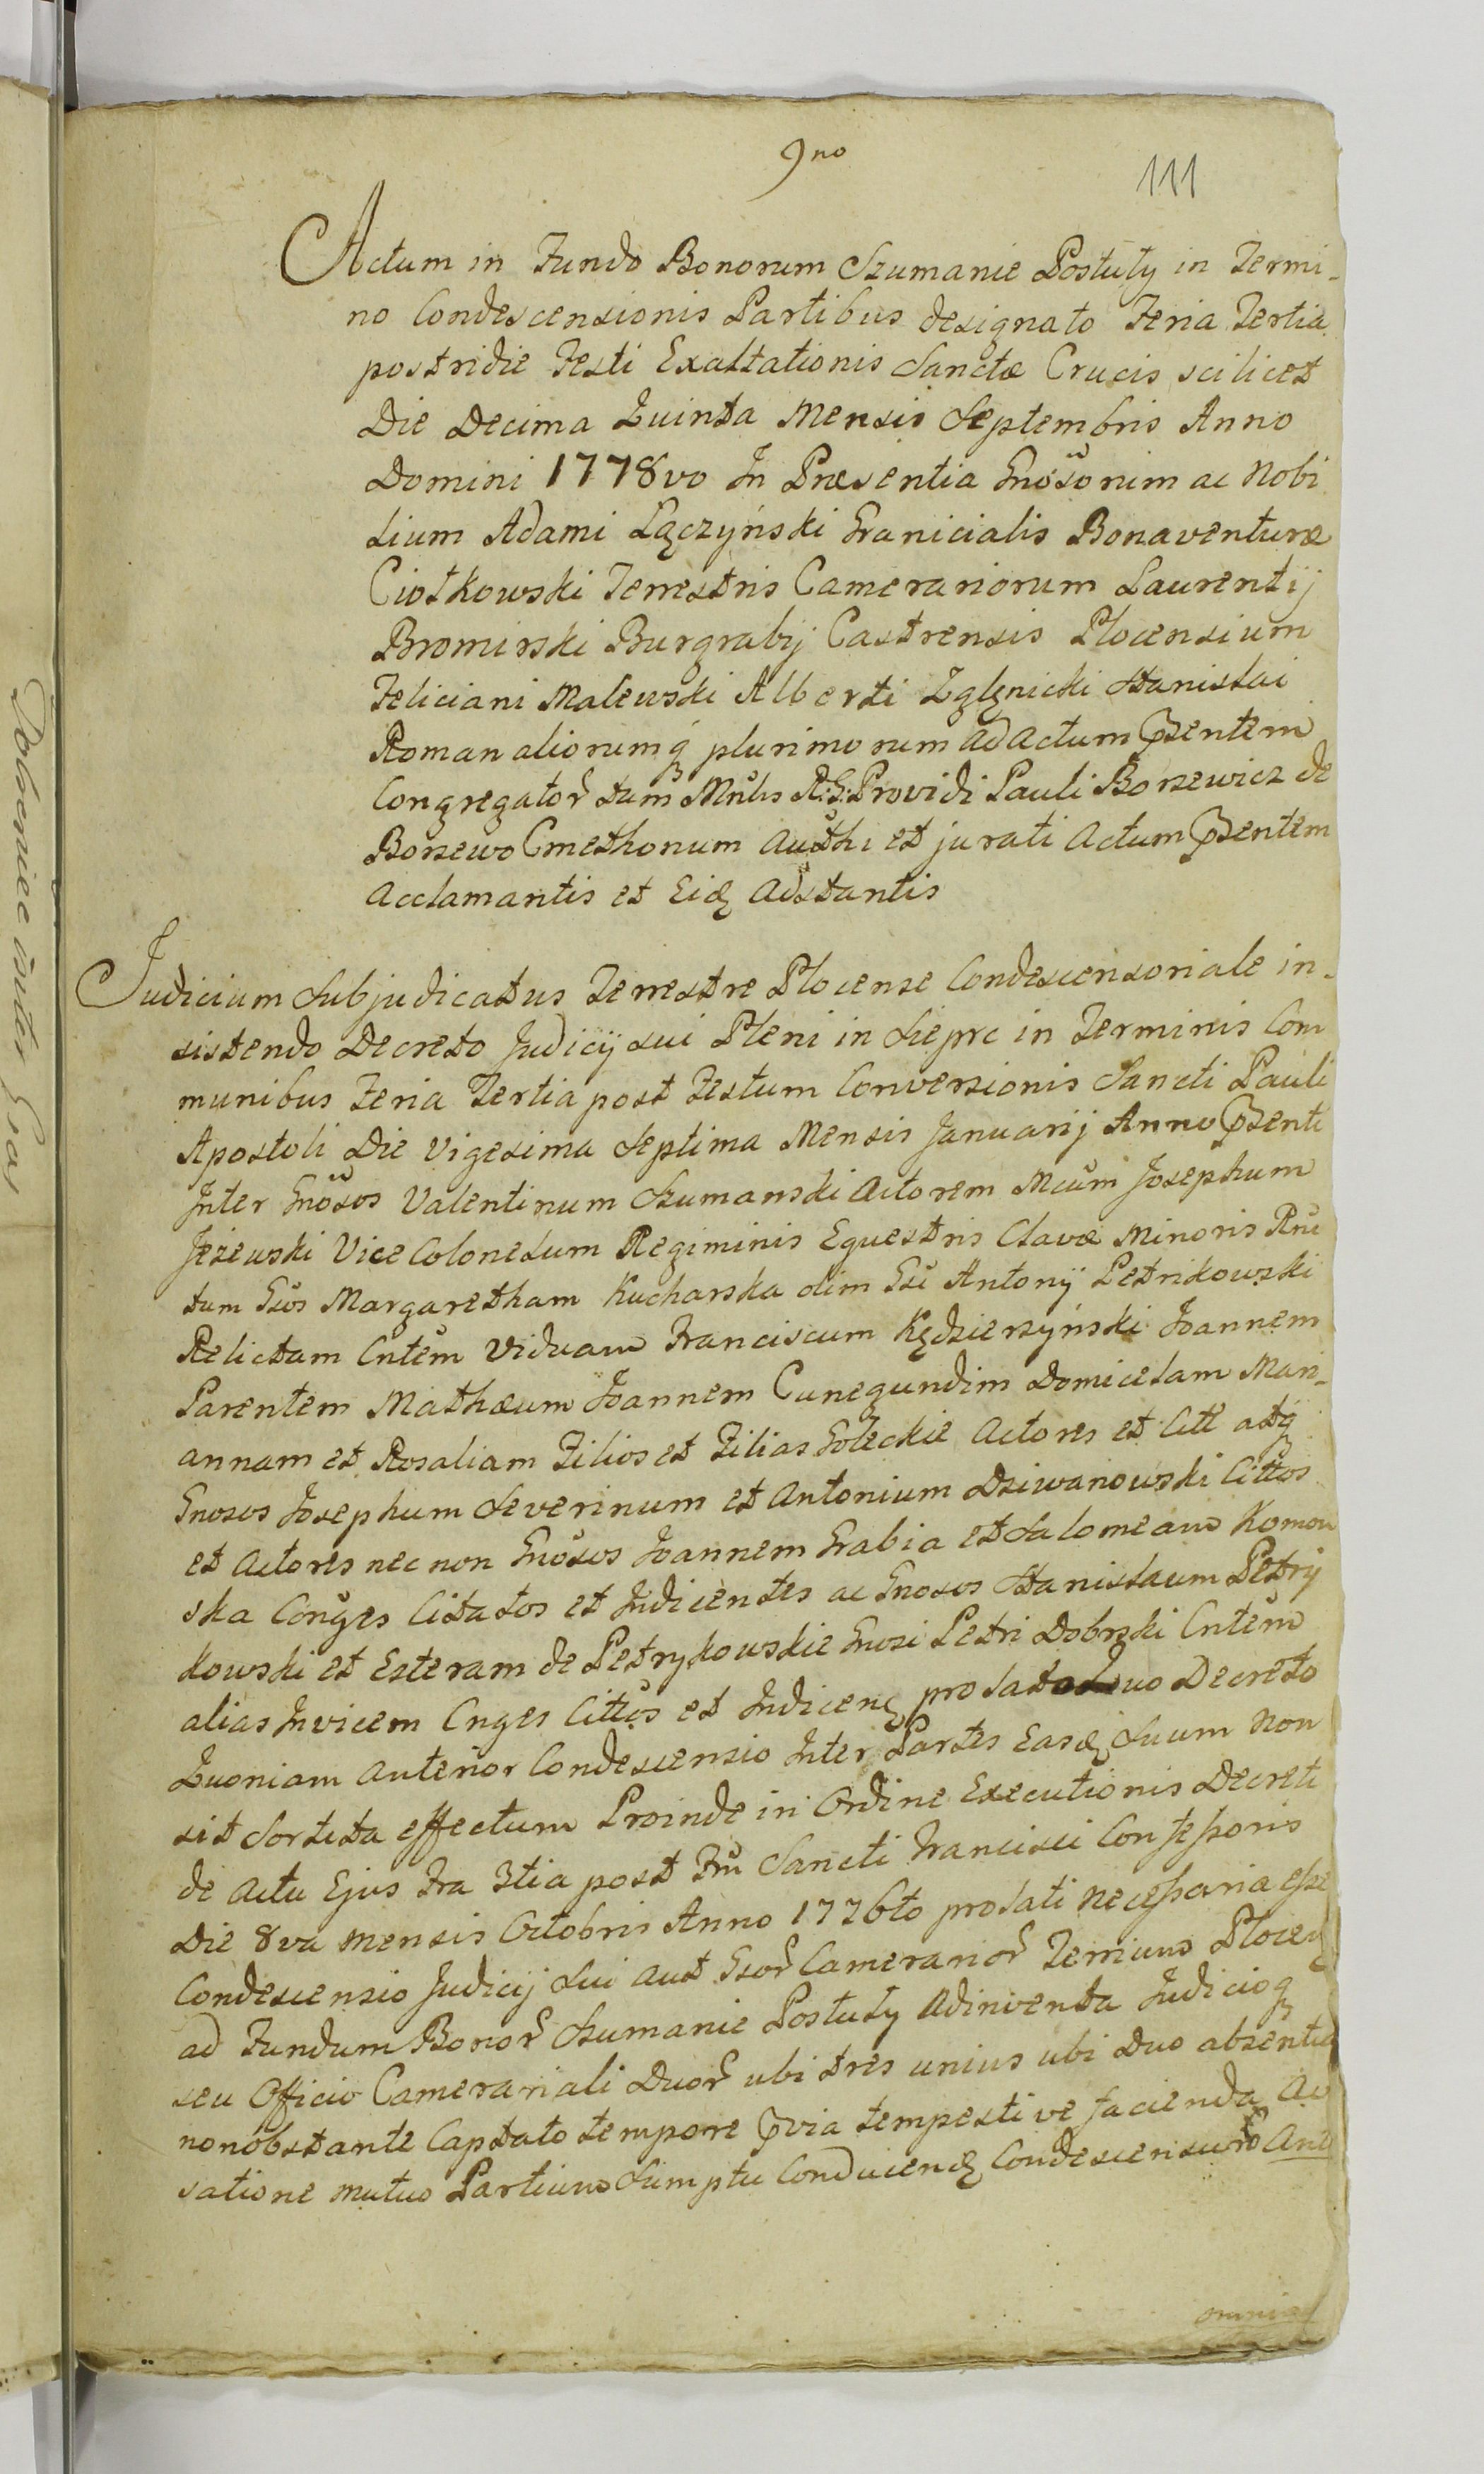 9no
111
Actum in Fundo Bonorum Szumanie Postuły in Termi-
no Condescensionis Partibus designato Feria Tertia
postridie Festi Exaltationis Sanctæ Crucis scilicet
Die Decima Quinta Mensis Septembris Anno
Domini 1778vo In Præsentia Gnösorum ac Nobi
lium Adami Łączyński Granicialis Bonaventuræ
Ciołkowski Terrestris Camerariorum Laurentij
Bromirski Burgrabij Castrensis Plocensium
Feliciani Malewski Alberti Zglęnicki Stanislai
Roman aliorumq plurimorum ad Actum Psentem
Congregator tum Mnlis R: G: Providi Pauli Borzewicz de
Borzewo Cmethonum Authi et jurati Actum Psentem
Acclamantis et Eid Adstantis
Judicium Subjudicatus Terrestre Plocense Condescensoriale in-
sistendo Decreto Judicij sui Pleni in Sieprc in Terminis Com
munibus Feria Tertia post Festum Conversionis Sancti Pauli
Apostoli Die Vigesima Septima Mensis Januarij Anno Psenti
Inter Gnösos Valentinum Szumanski Actorem Mcum Josephum
Jeżewski Vice Colonelum Regiminis Equestris Clavæ Minoris Rnc
tum Gsos Margaretham Kucharska olim Gsi Antonij Petrikowski
Relictam Cntem Viduam Franciscum Kędzierzyński Joannem
Parentem Mathæum Joannem Cunegundim Domicelam Mari-
annam et Rosaliam Filios et Filias Goleckie Actores et Citt atq
Gnosos Josephum Severinum et Antonium Dziwanowski Cittos
et Actores nec non Gnosos Joannem Grabia et Salomeam Komow
ska Conges Citatos et Indicentes ac Gnosos Stanislaum Petry
kowski et Esteram de Petrykowskie Gnosi Petri Dobrski Cntem
alias Invicem Cnges Cittos et Indicen prolato Quo Decreto
Quoniam anterior Condescensio Inter Partes Easd Suum non
sit Sortita effectum Proinde in Ordine Executionis Decreti
de Actu Ejus Fra 3tia post Fm Sancti Francisci Confessoris
Die 8va mensis Octobris Anno 1776to prolati necessaria esse
Condescensio Judicij Sui aut Gsor Camerarior Terrium Plocen
ad Fundum Bonor Szumanie Postuły Adinventa Judicioq
seu Officio Camerariali Duor ubi tres unius ubi Duo absentia
nonobstante Captato tempore Pvia tempestive facienda Av
satione mutuo Partium Sumptu Conducend Condescensuro Ante
omnia
Dobrnice inter Gsos